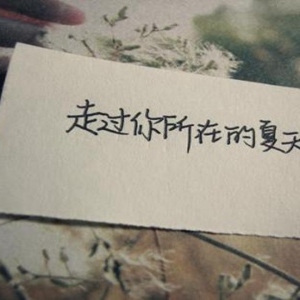 走过你所在的夏天